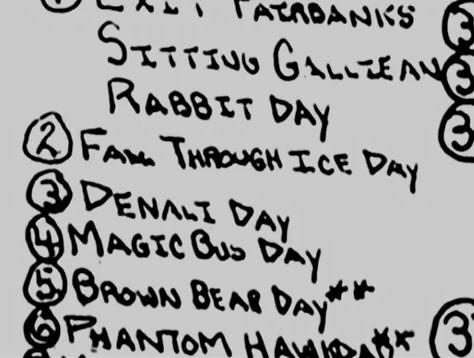 ① EXIT FAIRBANKS
SITTING GALLIEN
RABBIT DAY
② FALL THROUGH ICE DAY
③ DENALI DAY
④ MAGIC BUS DAY
⑤ BROWN BEAR DAY**
⑥ PHANTOM